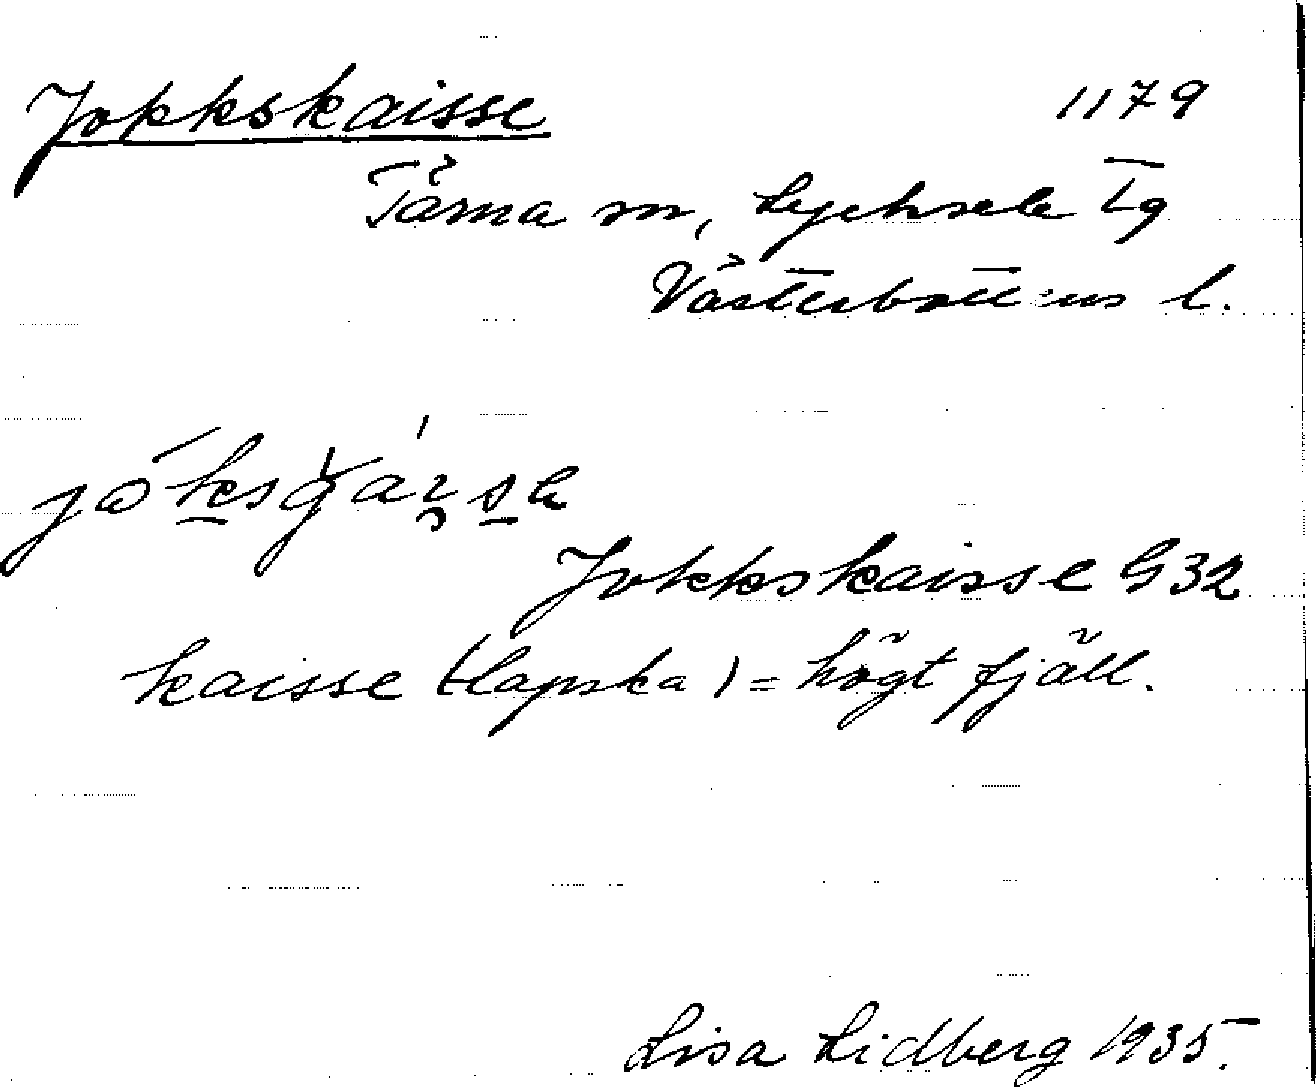 Jokkskaisse 1179
Tärna sn, Lycksele Lg
Västerbottens l.
Jokkskaisse G32
kaisse (lapska) = högt fjäll.
Lisa Lidberg 1935.